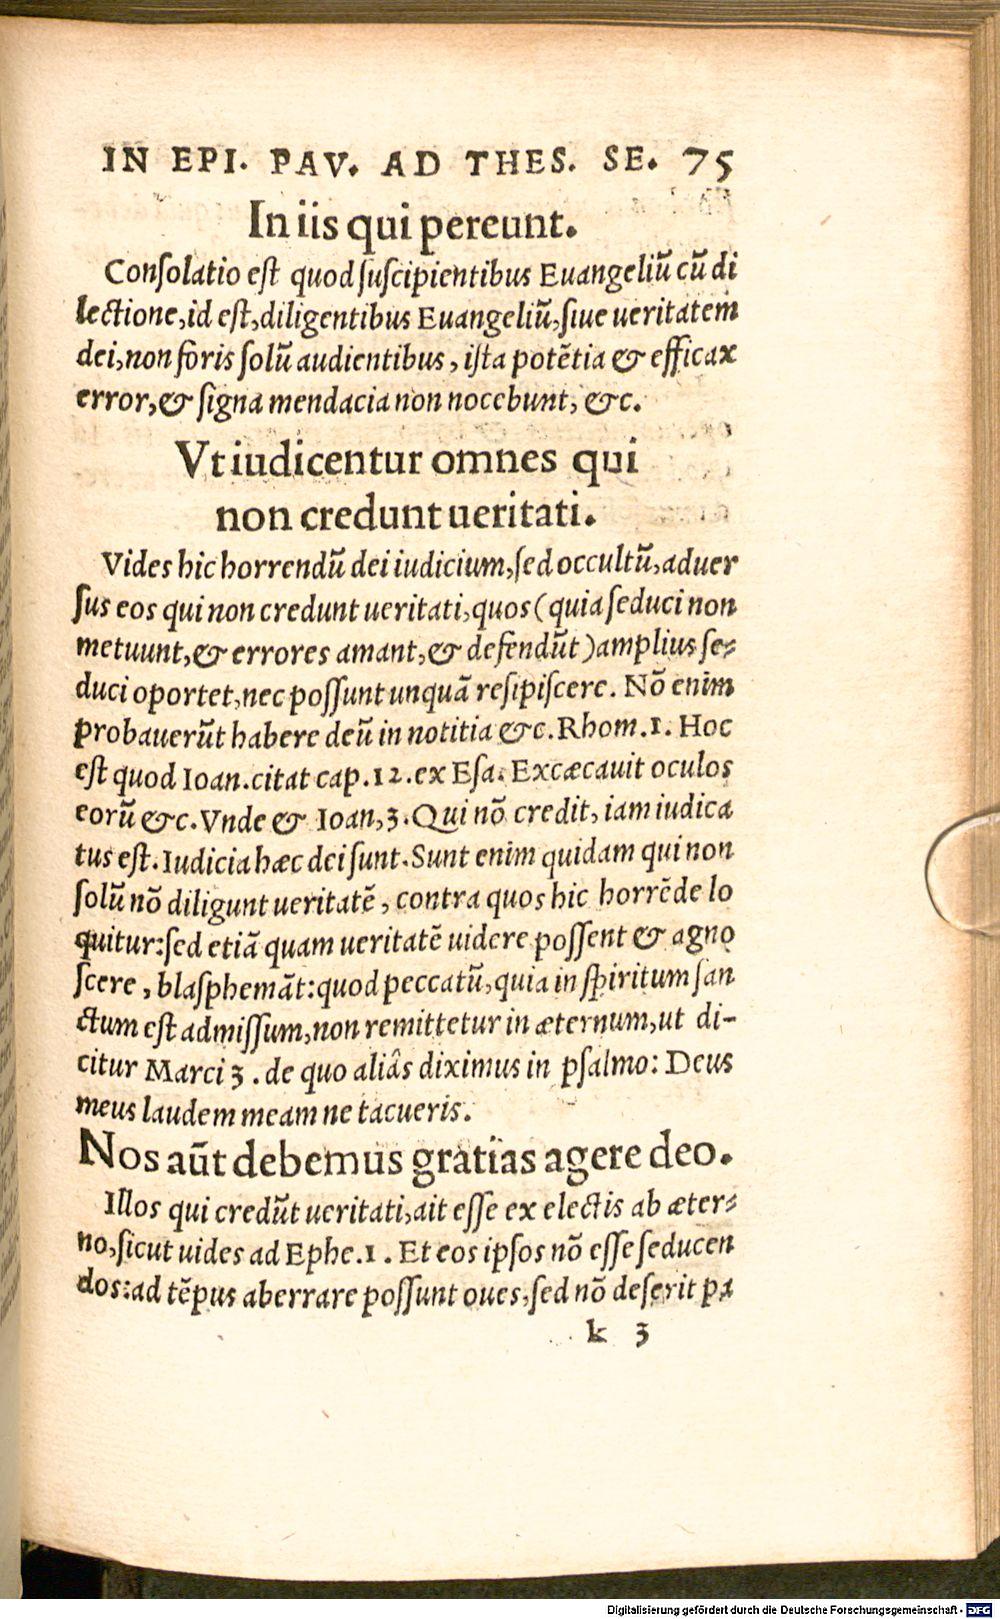 IN EPI. PAV. AD THES. SE. 75
In iis qui pereunt.
Conſolatio eſt quod ſuſcipientibus Euangeliū cū di
lectione, id eſt, diligentibus Euangeliū, ſiue ueritatem
dei, non foris ſolū audientibus, iſta potētia & efficax
error, & ſigna mendacia non nocebunt, &c.
Vt iudicentur omnes qui
non credunt ueritati.
Vides hic horrendū dei iudicium, ſed occultū, aduer
ſus eos qui non credunt ueritati, quos (quia ſeduci non
metuunt, & errores amant, & defendūt) amplius ſe-
duci oportet, nec poſſunt unquā reſipiſcere. Nō enim
probauerūt habere deū in notitia &c. Rhom. 1. Hoc
eſt quod Ioan. citat cap. 12. ex Eſa. Excæcauit oculos
eorū &c. Vnde & Ioan, 3. Qui nō credit, iam iudica
tus eſt. Iudicia hæc dei ſunt. Sunt enim quidam qui non
ſolū nō diligunt ueritatē, contra quos hic horrēde lo
quitur: ſed etiā quam ueritatē uidere poſſent & agno
ſcere, blaſphemāt: quod peccatū, quia in ſpiritum ſan
ctum eſt admiſſum, non remittetur in æternum, ut di-
citur Marci 3. de quo aliâs diximus in pſalmo: Deus
meus laudem meam ne tacueris.
Nos aūt debemus gratias agere deo.
Illos qui credūt ueritati, ait eſſe ex electis ab æter-
no, ſicut uides ad Ephe. 1. Et eos ipſos nō eſſe ſeducen
dos: ad tēpus aberrare poſſunt oues, ſed nō deſerit pa
k 3
Digitalisierung gefördert durch die Deutsche Forschungsgemeinschaft - DFG